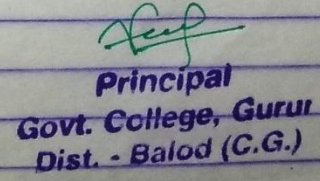 Principal
Govt. College, Gurur
Dist. - Balod (C.G.)